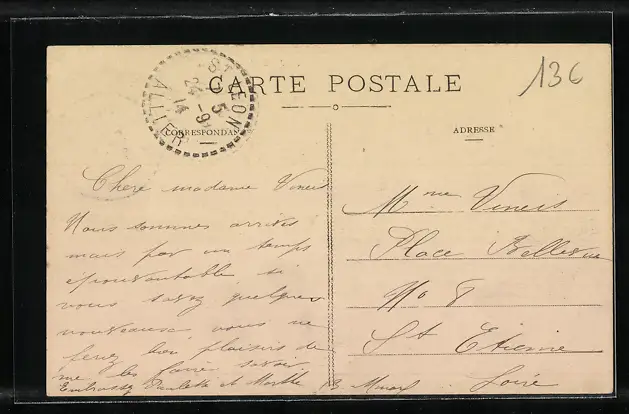 CARTE POSTALE
136
ST LEON
5
24 - 9
14
ALLIER
CORRESPONDANCE
ADRESSE
Chère madame Vincis
Nous sommes arrivés
mais par un temps
épouvantable, si
vous savez quelques
nouveaux vous me
ferez bien plaisirs de
me les faire savoir
Embrassez Paulette et Marthe
Mme Vincis
Place Bellevue
No 8
St Etienne
Loire